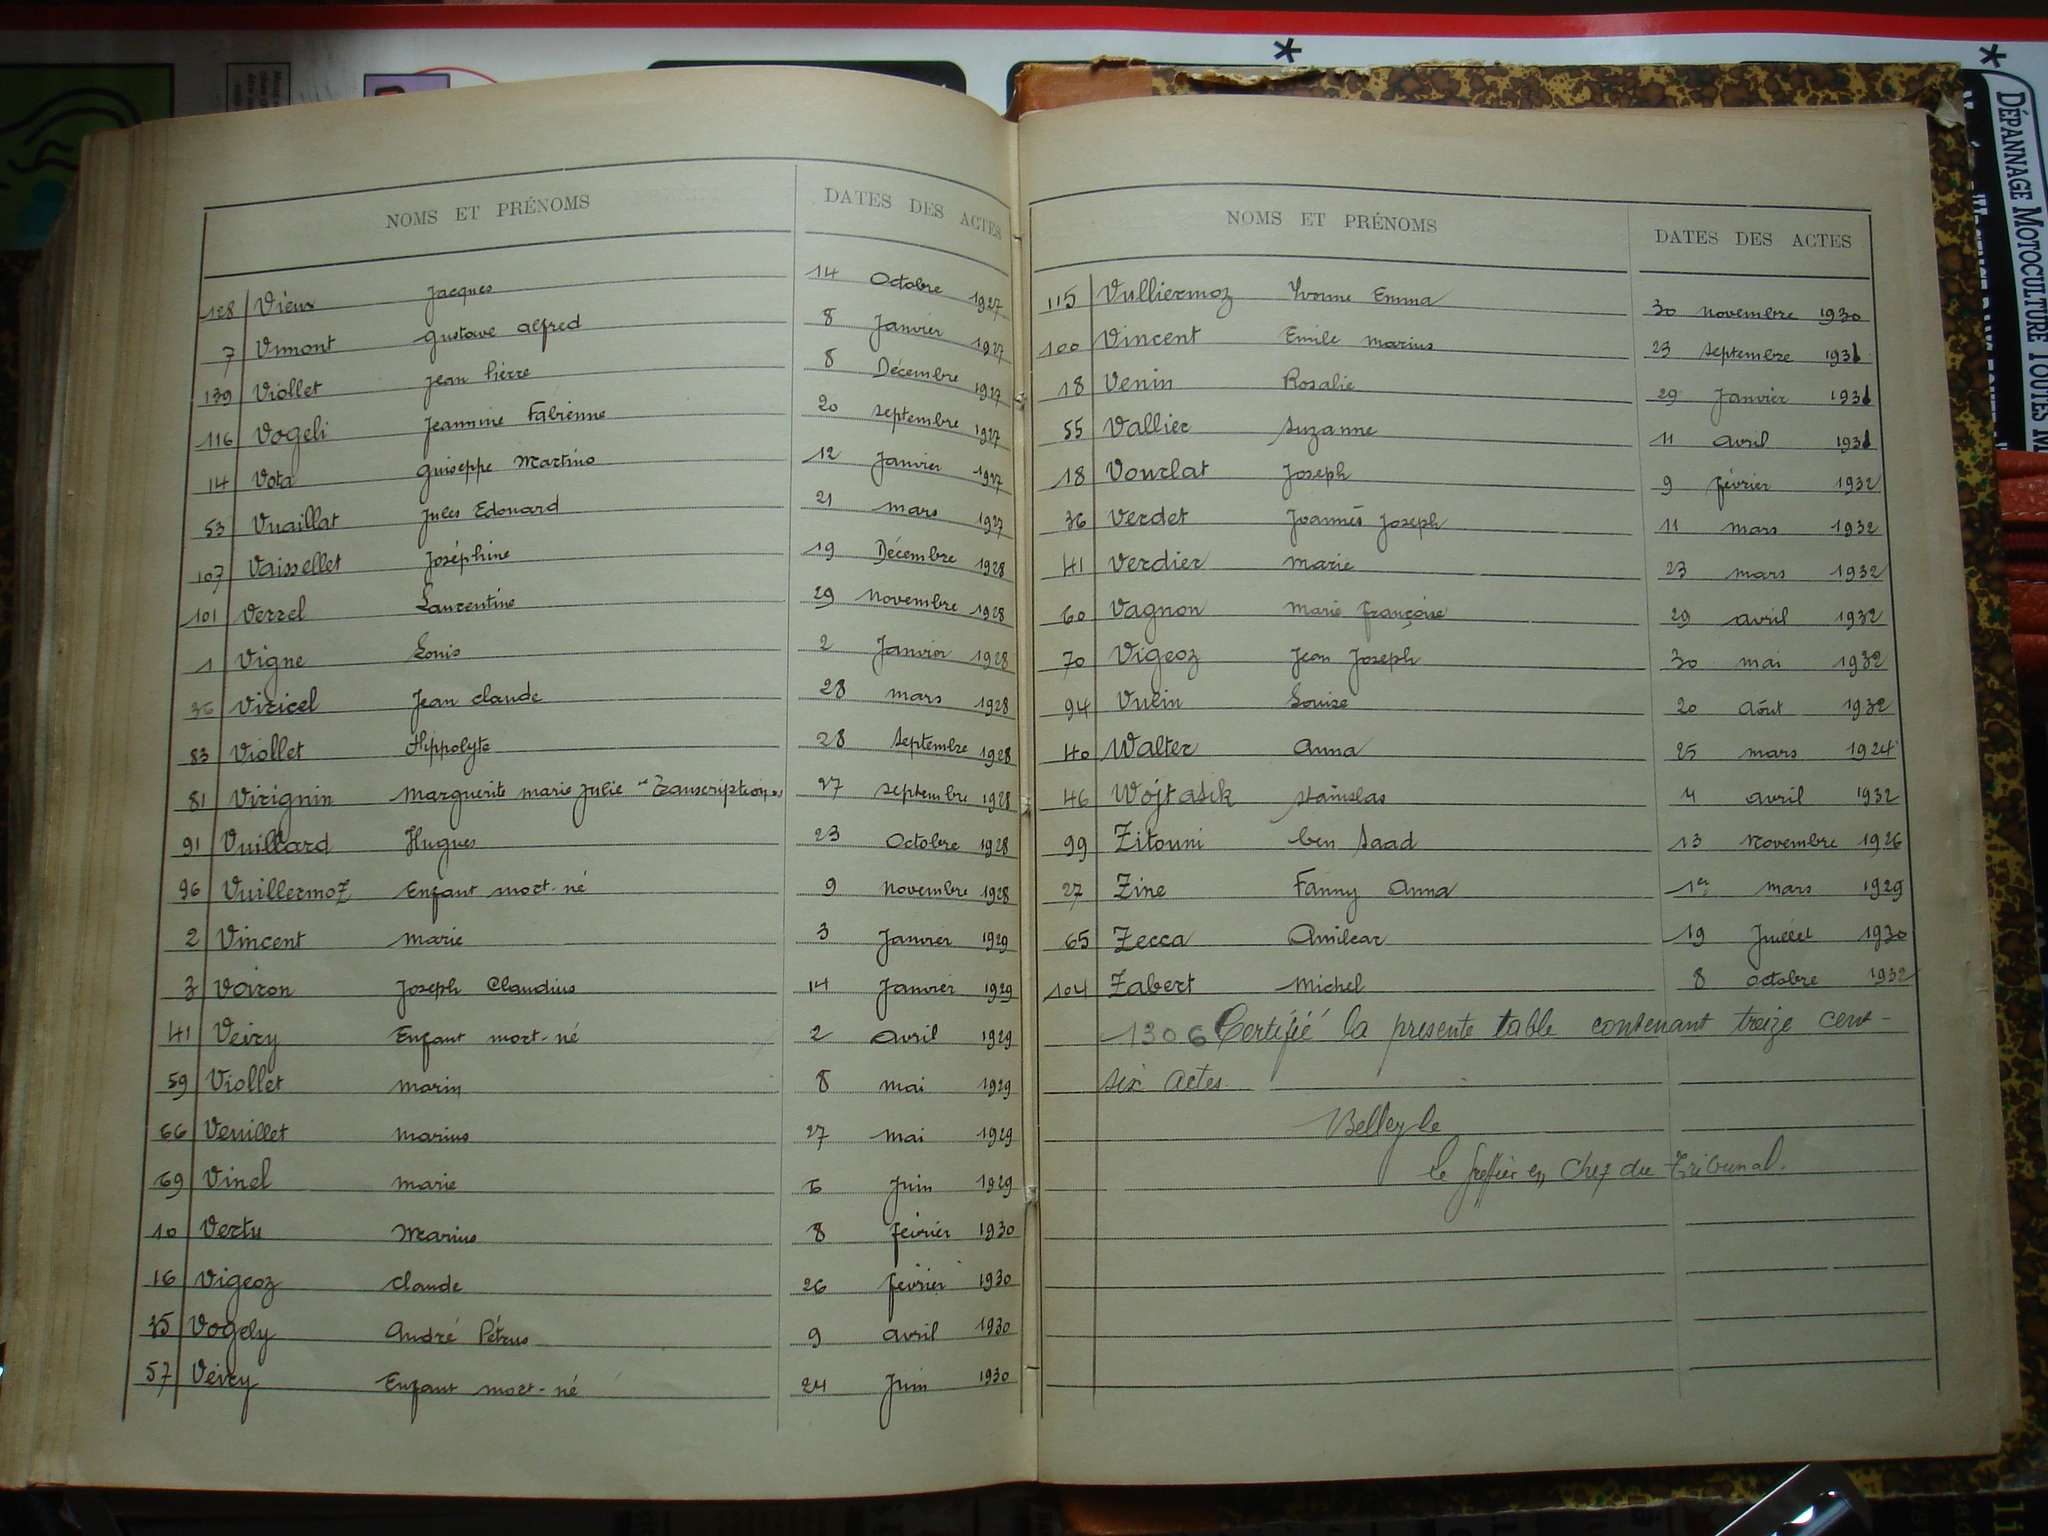 DÉPANNAGE MOTOCULTURE TOUTES M
NOMS ET PRÉNOMS DATES DES ACTES
128 Vieux Jacques 14 Octobre 1927
7 Vimont Gustave Alfred 8 Janvier 1927
139 Viollet Jean Pierre 8 Décembre 1927
116 Vogeli Jeannine Fabienne 20 Septembre 1927
14 Vota Guiseppe Martino 12 Janvier 1927
53 Vuaillat Jules Edouard 21 mars 1927
107 Vaissellet Joséphine 19 Décembre 1928
101 Verrel Laurentine 29 Novembre 1928
1 Vigne Louis 2 Janvier 1928
36 Viricel Jean Claude 28 mars 1928
83 Viollet Hippolyte 28 Septembre 1928
81 Virignin Marguerite marie Julie "Transcription" 27 Septembre 1928
91 Vuillard Hugues 23 Octobre 1928
96 Vuillermoz Enfant mort-né 9 Novembre 1928
2 Vincent Marie 3 Janvier 1929
3 Vairon Joseph Claudius 14 Janvier 1929
41 Veivy Enfant mort-né 2 Avril 1929
59 Viollet Marin 8 mai 1929
66 Veuillet Marius 27 mai 1929
69 Vinel Marie 6 Juin 1929
10 Vertu Marius 8 février 1930
16 Vigeoz Claude 26 février 1930
35 Vogely André Pétrus 9 avril 1930
57 Veivy Enfant mort-né 24 Juin 1930
NOMS ET PRÉNOMS DATES DES ACTES
115 Vulliermoz Yvonne Emma 30 novembre 1930
100 Vincent Emile Marius 23 Septembre 1931
18 Venin Rosalie 29 Janvier 1931
55 Vallier Suzanne 11 avril 1931
18 Vourlat Joseph 9 février 1932
36 Verdet Joannès Joseph 11 mars 1932
41 Verdier Marie 23 mars 1932
60 Vagnon Marie Françoise 29 avril 1932
70 Vigeoz Jean Joseph 30 mai 1932
94 Vulin Louise 20 Août 1932
40 Walter Anna 25 mars 1924
46 Wojtasik Stanislas 4 avril 1932
99 Zitouni ben Saad 13 Novembre 1926
27 Zine Fanny Anna 1er mars 1929
65 Zecca Amilcar 19 Juillet 1930
104 Zabert Michel 8 octobre 1932
1306 Certifié la presente table contenant treize cent-
six actes
Belley le
Le Greffier en Chef du Tribunal.